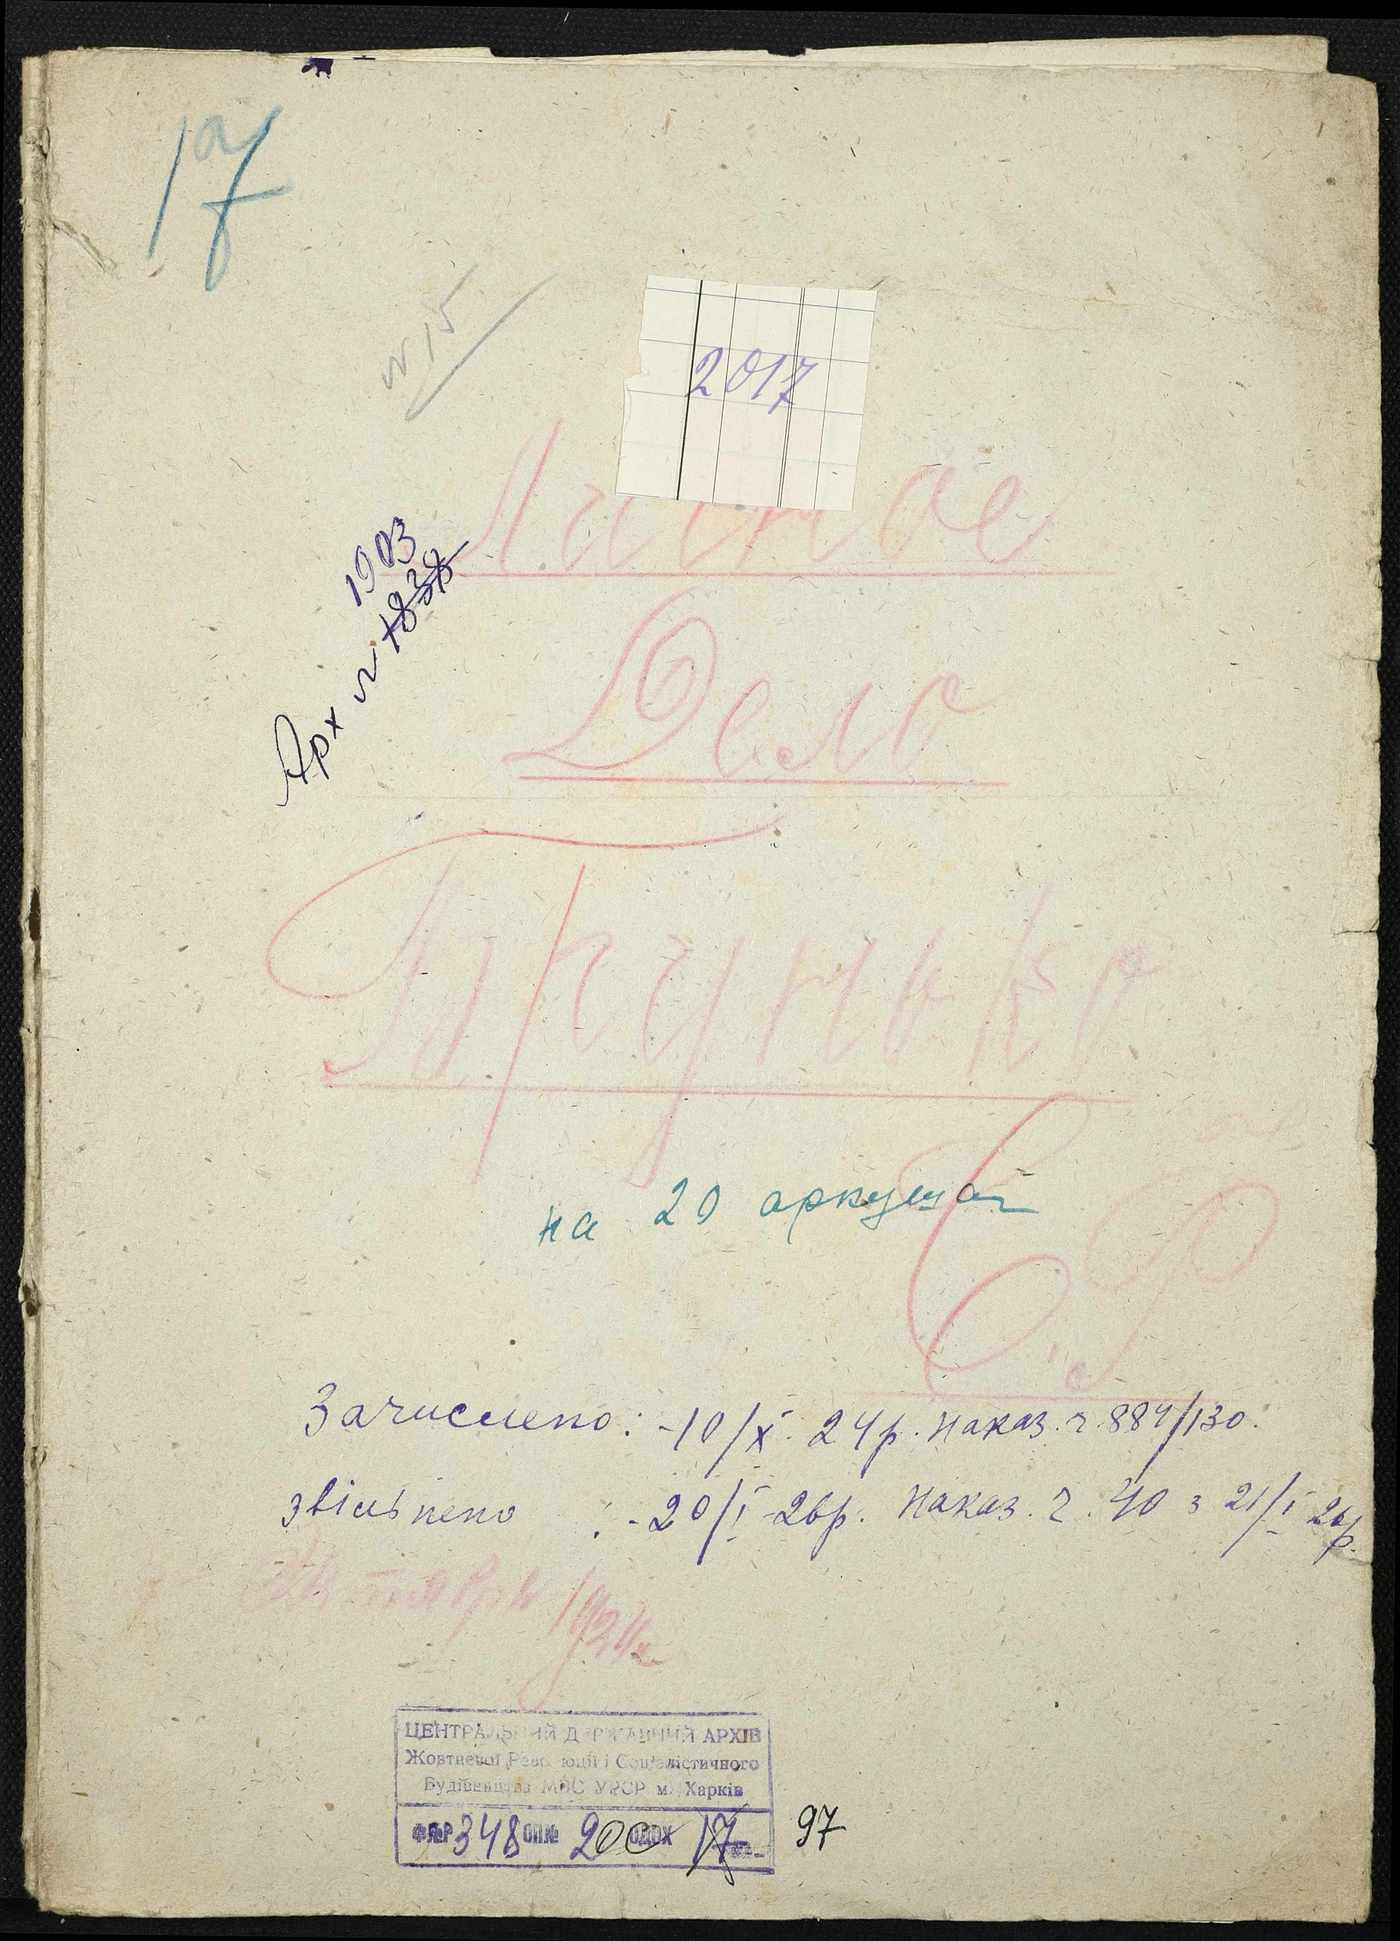 17
№ 15
2017
Личное
Арх № 1838
1903
Дело
Грунько
на 20 аркушах
Зачислено: -10/X 24р. наказ. ч. 884/130.
звільнено : -20/I-26р. наказ. ч. 40 з 21/I 26р.
1924
ЦЕНТРАЛЬНИЙ ДЕРЖАВНИЙ АРХІВ
Жовтневої Революції і Соціалістичного
Будівництва МВС УРСР м. Харків
Ф№Р348 ОП№ 2 ОДОХ 17
97